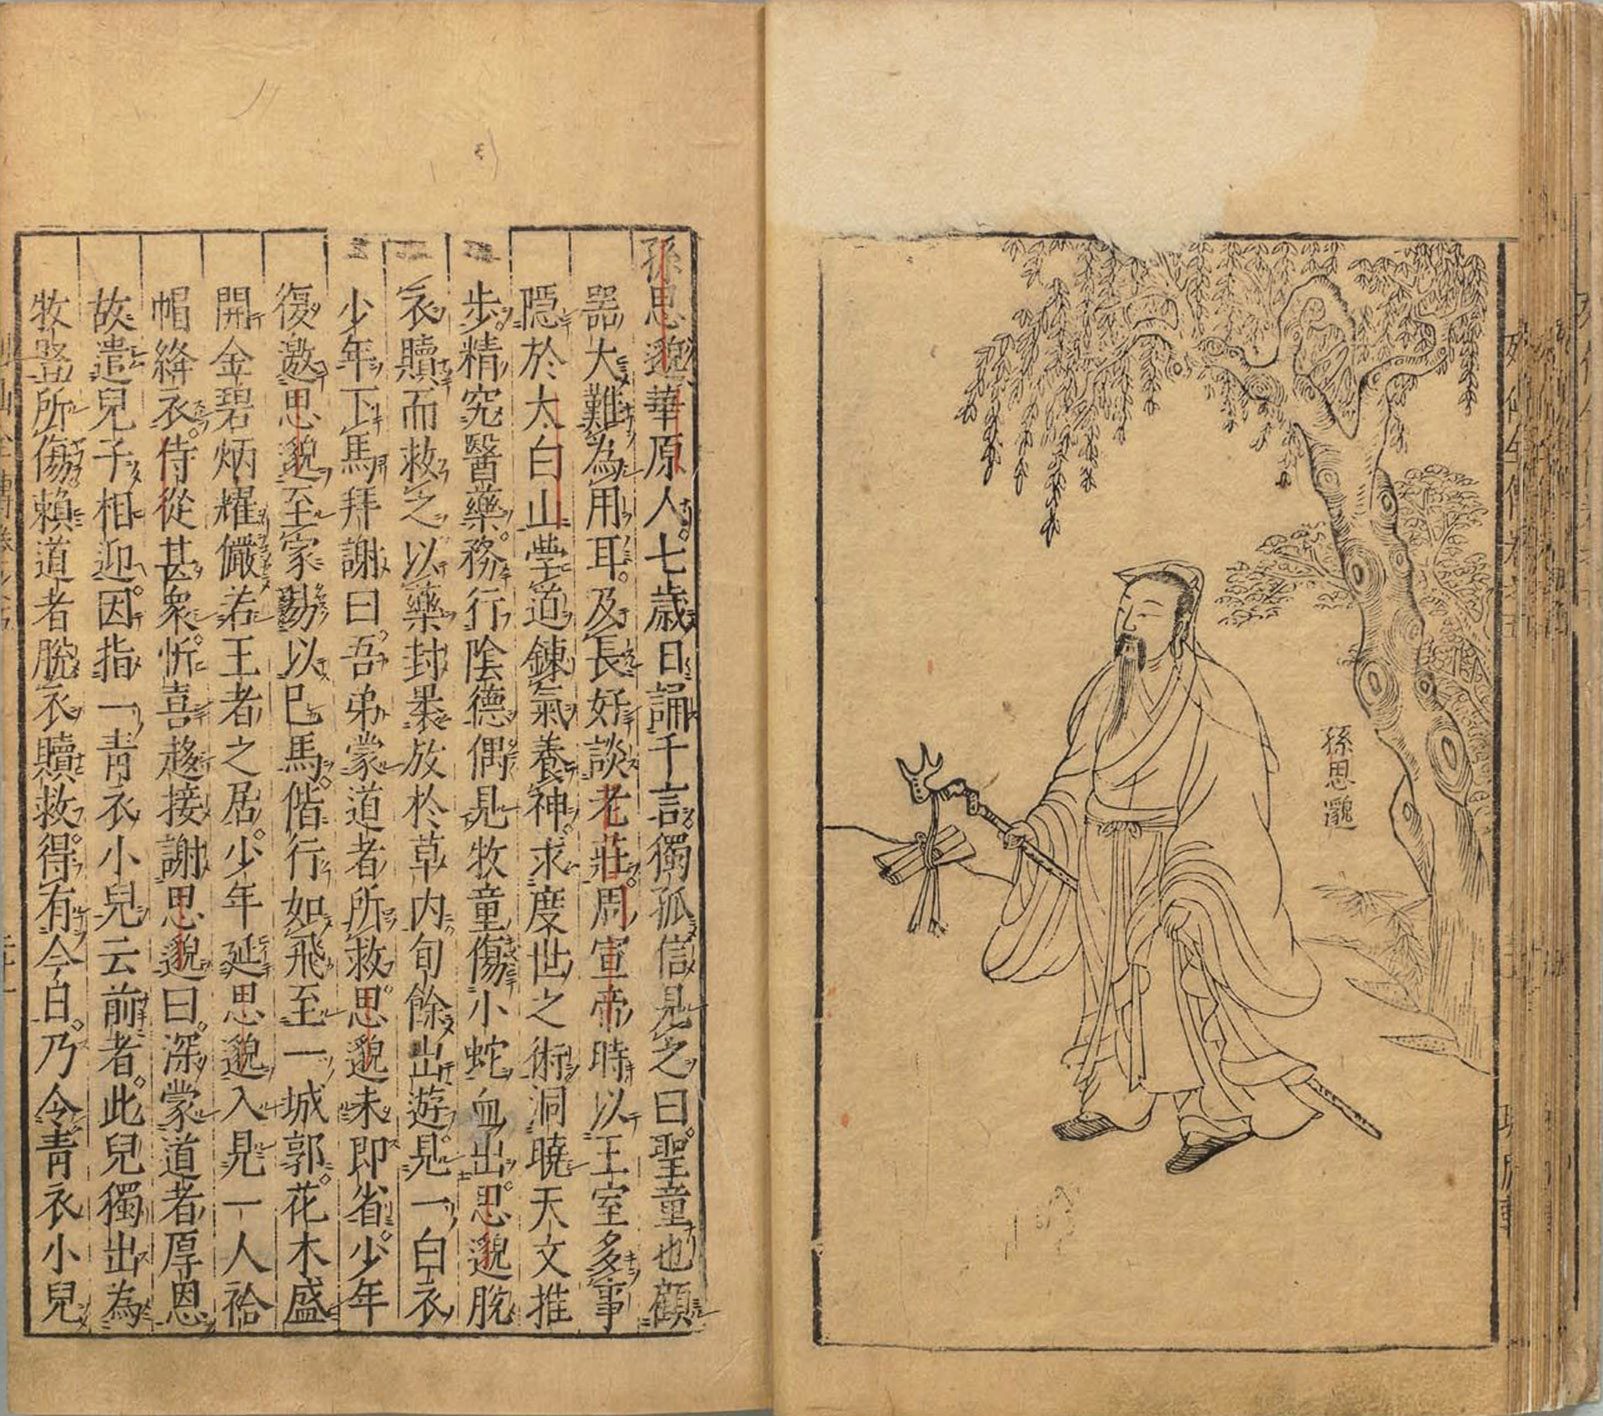 孫思邈
孫思邈華原人。七歲日誦千言。獨孤信見之曰。聖童也顧
器大難為用耳。及長好談老莊。周宣帝時以王室多事
隱於太白山學道鍊氣養神。求度世之術洞曉天文推
步。精究醫藥。務行陰德偶見牧童傷小蛇血出。思邈脫
衣贖而救之以藥封裹放於草内旬餘出遊。見一白衣
少年下馬拜謝曰。吾弟蒙道者所救。思邈未即省。少年
復邀思邈至家易以己馬。偕行如飛至一城郭。花木盛
開金碧炳耀儼若王者之居。少年延思邈入見一人袷
帽絳衣。侍從甚衆。忻喜趨接謝思邈曰。深蒙道者厚恩
故遣兒子相迎。因指一靑衣小兒云前者。此兒獨出為
牧豎所傷賴道者脫衣贖救。得有今日。乃令靑衣小兒